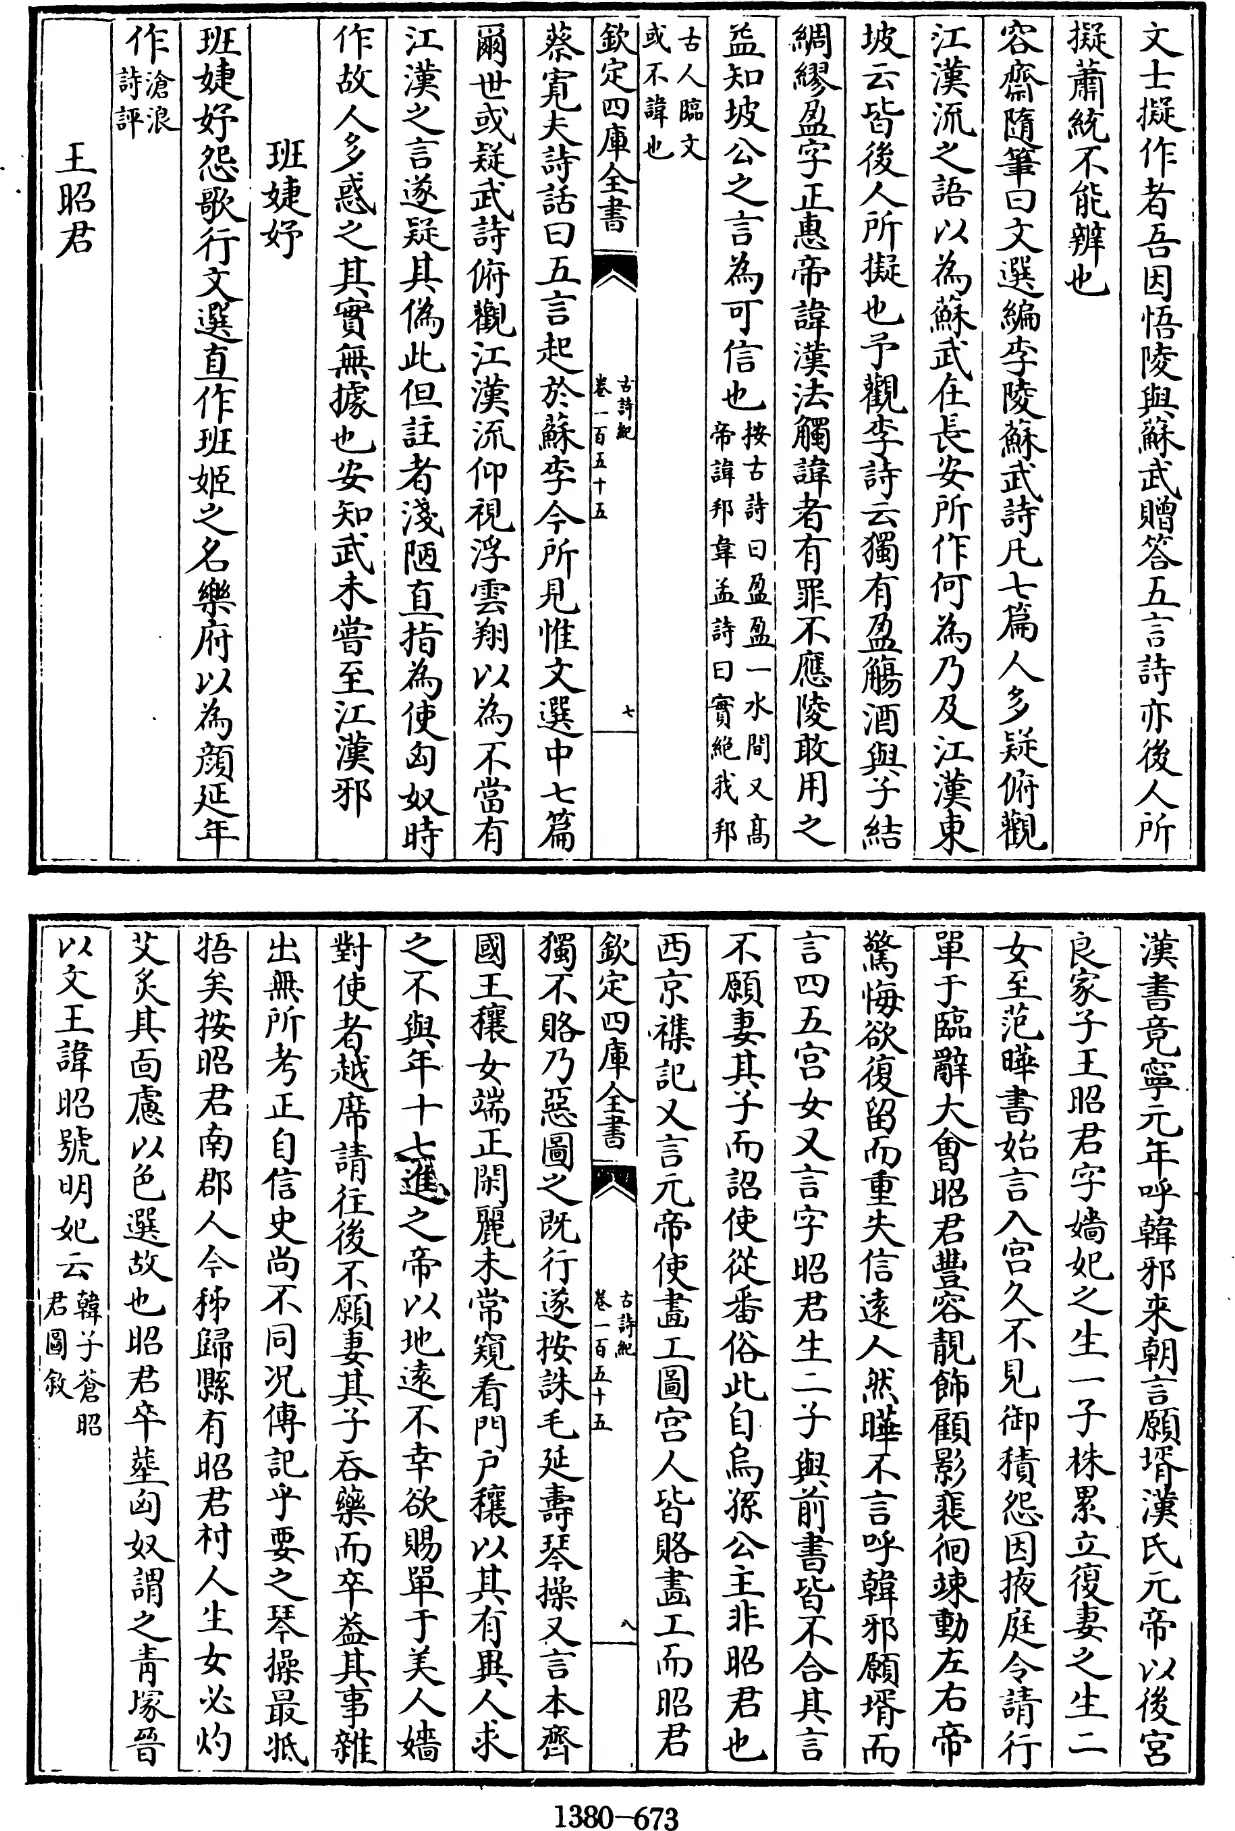 文士擬作者吾因悟陵與蘇武贈答五言詩亦後人所
擬蕭統不能辨也
容齋隨筆曰文選編李陵蘇武詩凡七篇人多疑俯觀
江漢流之語以為蘇武在長安所作何為乃及江漢東
坡云皆後人所擬也予觀李詩云獨有盈觴酒與子結
綢繆盈字正惠帝諱漢法觸諱者有罪不應陵敢用之
益知坡公之言為可信也
按古詩曰盈盈一水間又髙
帝諱邦韋孟詩曰實絶我邦
古人臨文
或不諱也
欽定四庫全書
古詩紀
卷一百五十五
七
蔡寛夫詩話曰五言起於蘇李今所見惟文選中七篇
爾世或疑武詩俯觀江漢流仰視浮雲翔以為不當有
江漢之言遂疑其偽此但註者淺陋直指為使匈奴時
作故人多惑之其實無據也安知武未嘗至江漢邪
班婕妤
班婕妤怨歌行文選直作班姬之名樂府以為顔延年
作
滄浪
詩評
王昭君
漢書竟寧元年呼韓邪来朝言願壻漢氏元帝以後宫
良家子王昭君字嬙妃之生一子株累立復妻之生二
女至范曄書始言入宫久不見御積怨因掖庭令請行
單于臨辭大會昭君豐容靚飾顧影裴徊竦動左右帝
驚悔欲復留而重失信逺人然曄不言呼韓邪願壻而
言四五宫女又言字昭君生二子與前書皆不合其言
不願妻其子而詔使從番俗此自烏孫公主非昭君也
西京襍記又言元帝使畫工圖宫人皆賂畫工而昭君
欽定四庫全書
古詩紀
卷一百五十五
八
獨不賂乃惡圖之既行遂按誅毛延壽琴操又言本齊
國王穰女端正閑麗未常窺看門户穰以其有異人求
之不與年十七進之帝以地逺不幸欲賜單于美人嬙
對使者越席請往後不願妻其子吞藥而卒葢其事雜
出無所考正自信史尚不同况傳記乎要之琴操最牴
牾矣按昭君南郡人今秭歸縣有昭君村人生女必灼
艾炙其面慮以色選故也昭君卒塟匈奴謂之青塜晉
以文王諱昭號明妃云
韓子蒼昭
君圖敘
1380-673